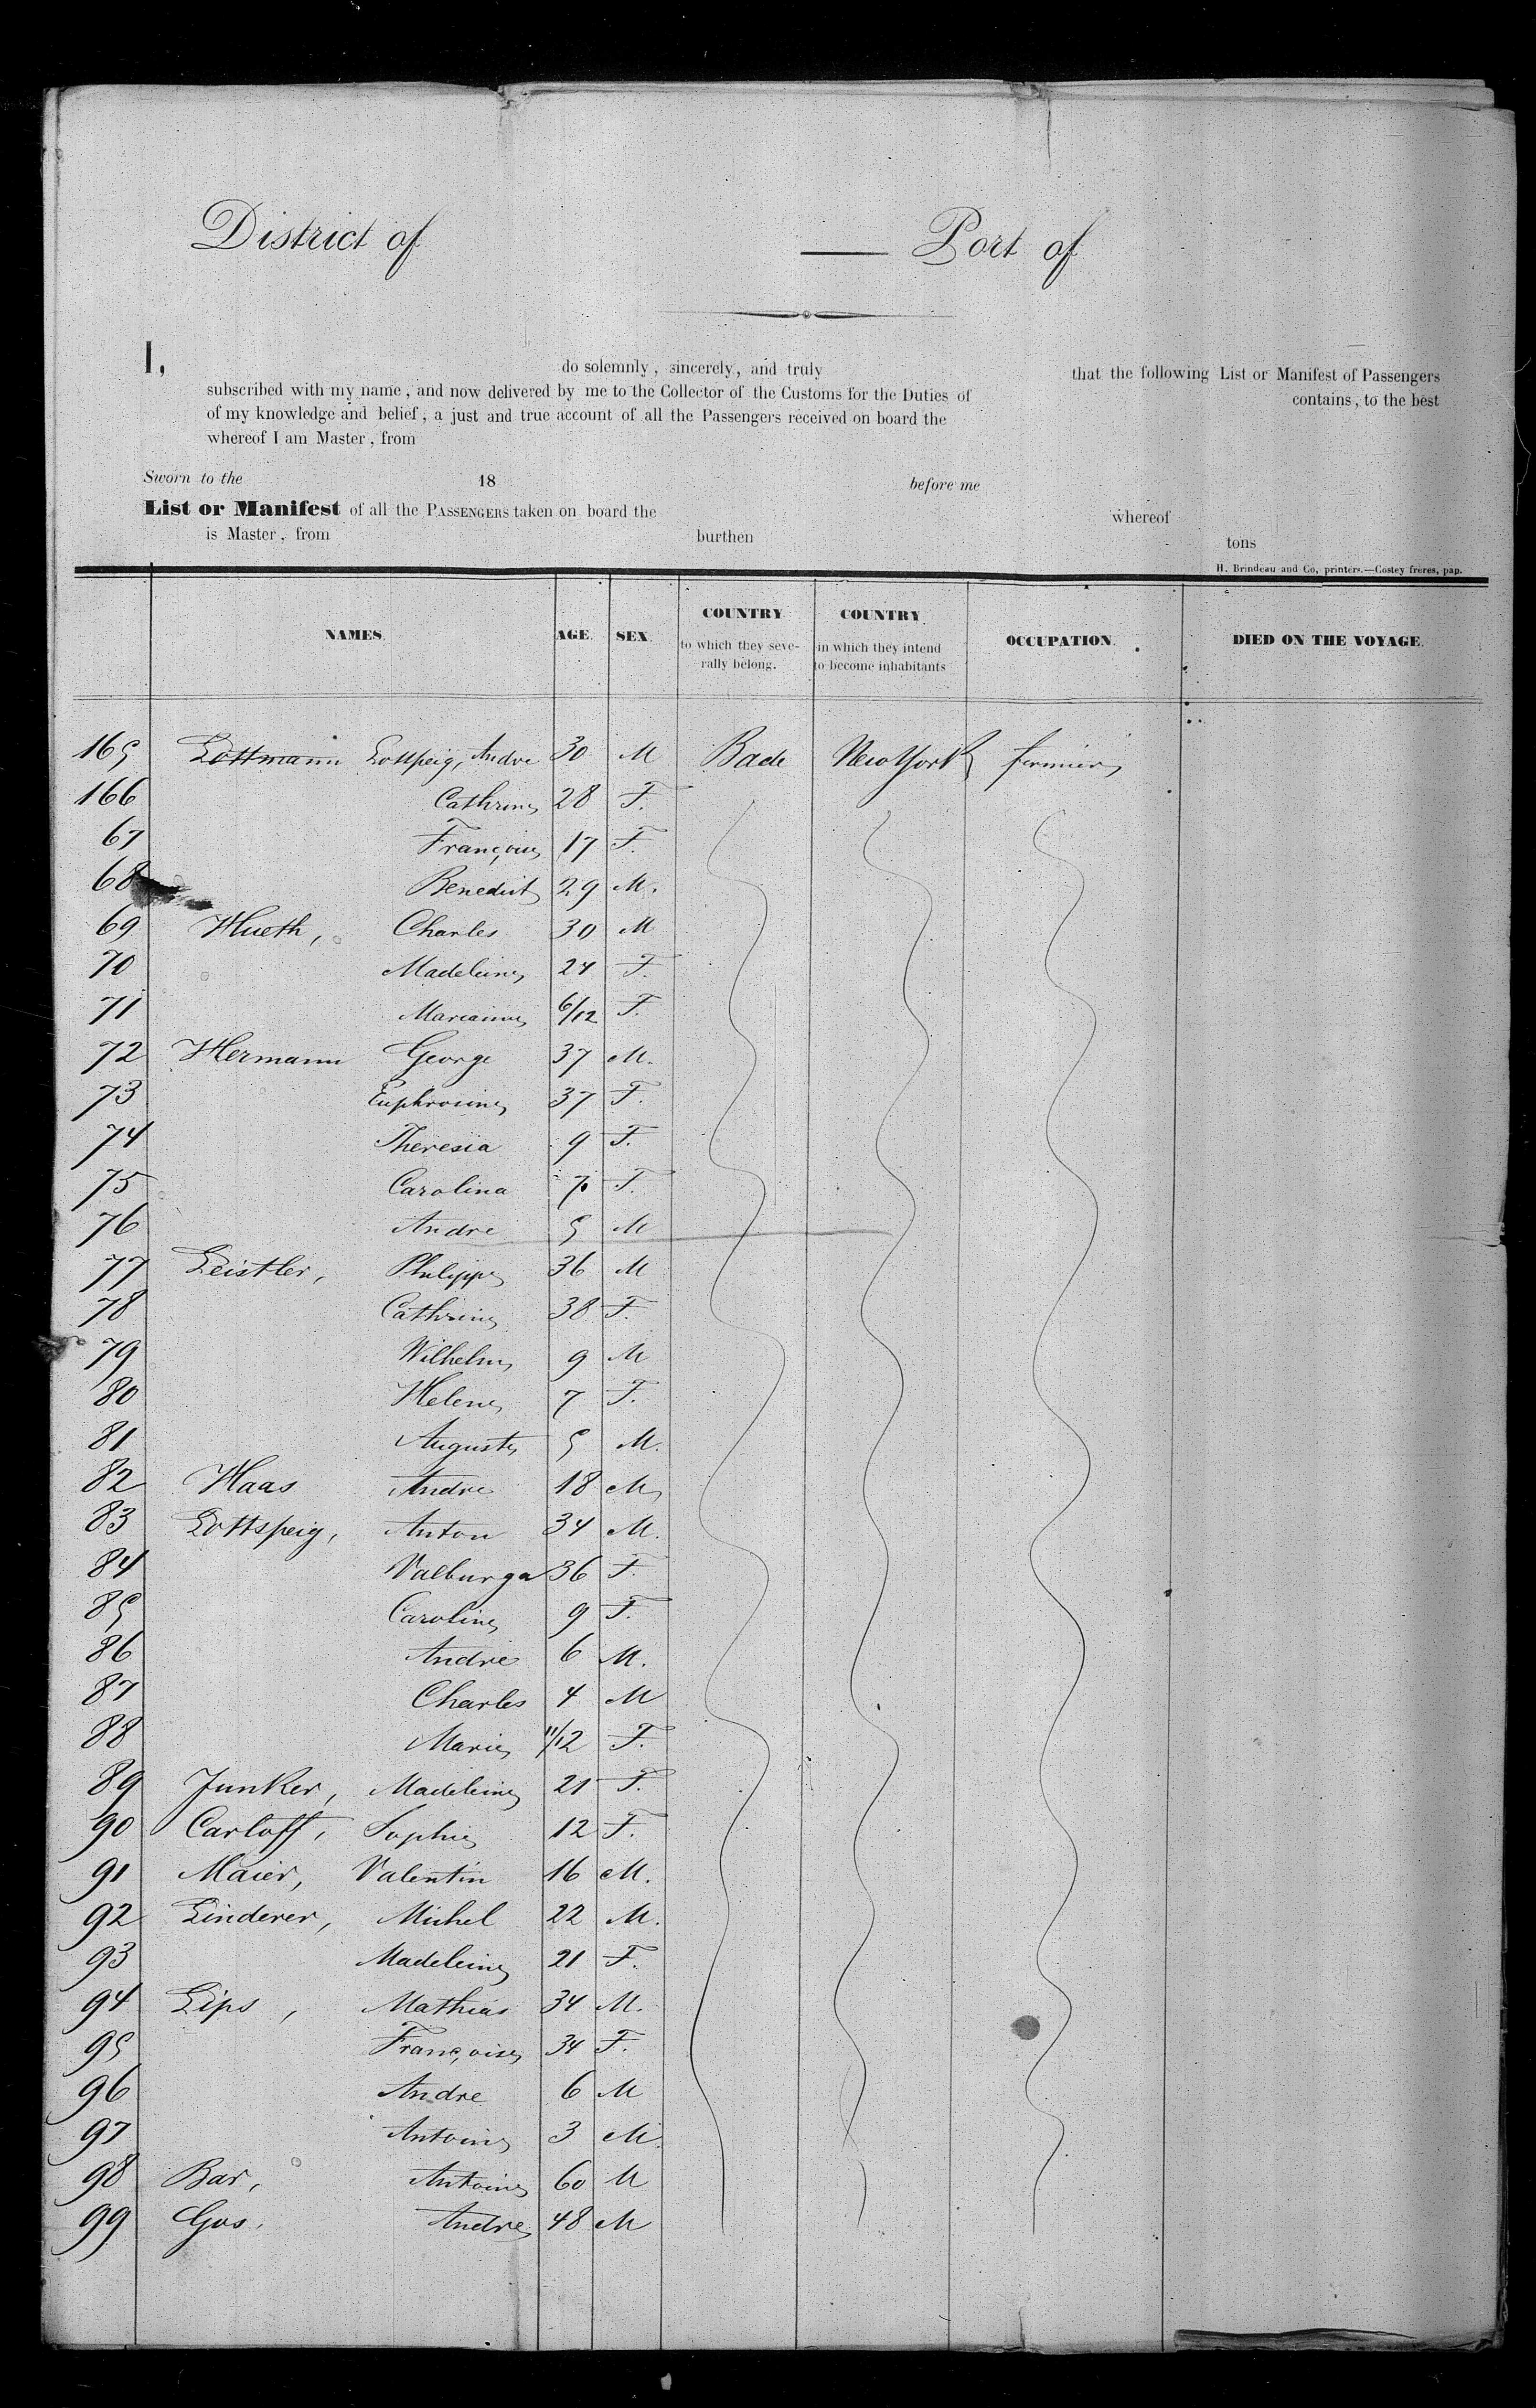 District of — Port of
I, do solemnly, sincerely, and truly that the following List or Manifest of Passengers
subscribed with my name, and now delivered by me to the Collector of the Customs for the Duties of contains, to the best
of my knowledge and belief, a just and true account of all the Passengers received on board the
whereof I am Master, from
Sworn to the 18 before me
List or Manifest of all the PASSENGERS taken on board the whereof
is Master, from burthen tons
H. Brindeau and Co, printers.—Costey freres, pap.
NAMES. AGE. SEX. COUNTRY to which they severally belong. COUNTRY in which they intend to become inhabitants OCCUPATION. DIED ON THE VOYAGE.
165 Lottmann Lottspeig, Andre 30 M Bade New York fermier
166 Cathrine 28 F.
67 Françoise 17 F.
68 Benedict 29 M.
69 Hueth, Charles 30 M
70 Madeleine 24 F.
71 Marianne 6/12 F.
72 Hermann George 37 M.
73 Euphrosine 37 F.
74 Theresia 9 F.
75 Carolina 7 F.
76 Andre 5 M
77 Leistler, Philippe 36 M
78 Cathrine 38 F.
79 Wilhelm 9 M
80 Helene 7 F.
81 Auguste 5 M.
82 Haas Andre 18 M
83 Lottspeig, Anton 34 M.
84 Valburga 36 F.
85 Caroline 9 F.
86 Andre 6 M.
87 Charles 4 M
88 Marie 11/12 F.
89 Junker, Madeleine 21 F.
90 Carloff, Sophie 12 F.
91 Maier, Valentin 16 M.
92 Linderer, Michel 22 M.
93 Madeleine 21 F.
94 Lips, Mathias 34 M.
95 Françoise 34 F.
96 Andre 6 M
97 Antoine 3 M.
98 Bar, Antoine 60 M
99 Gos. Andre 48 M